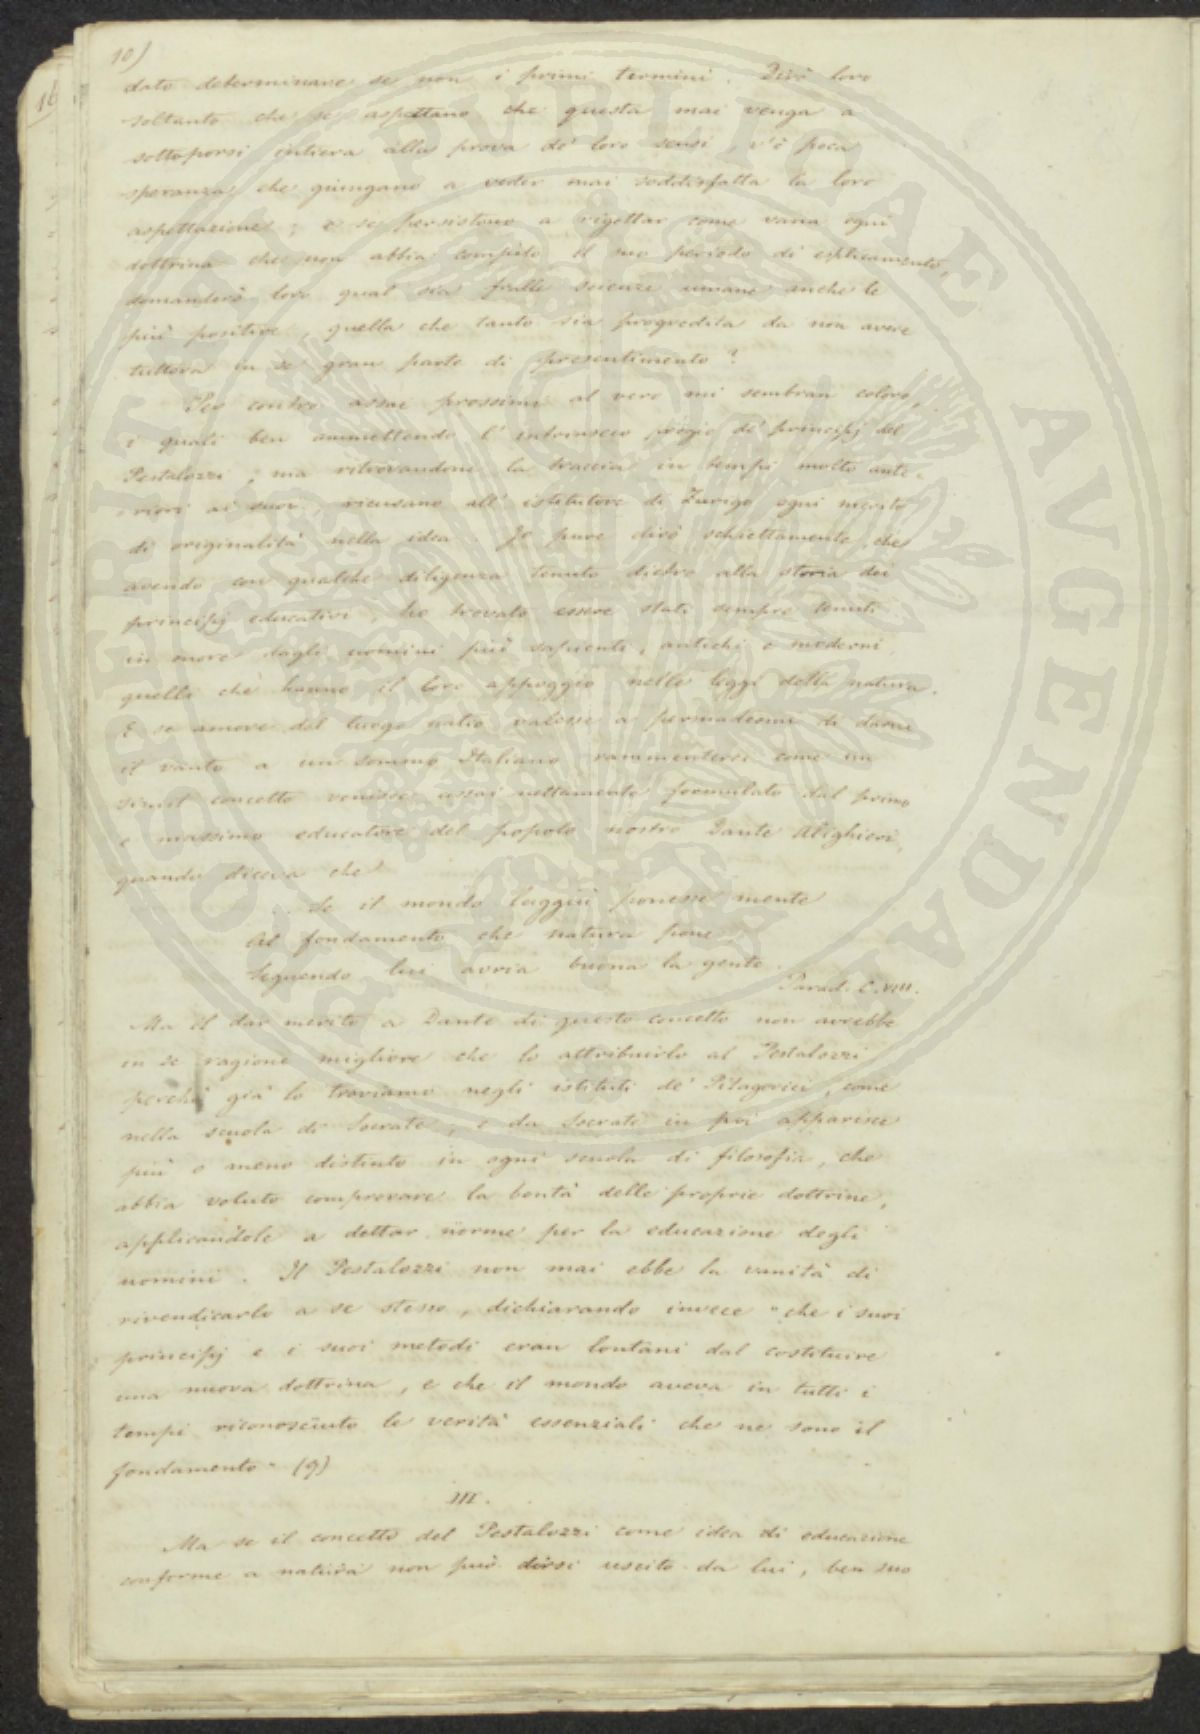 10)
16
dato determinare se non i primi termini. Dirò loro
soltanto che se aspettano che questa mai venga a
sottoporsi intiera alla prova de' loro sensi, v'è poca
speranza che giungano a veder mai soddisfatta la loro
aspettazione; e se persistono a rigettar come vana ogni
dottrina che non abbia compito il suo periodo di esplicamento,
domanderò loro qual sia fralle scienze umane anche le
più positive, quella che tanto sia progredita da non avere
tuttora in se gran parte di presentimento?
Per contro assai prossimi al vero mi sembran coloro,
i quali ben ammettendo l'intrinseco pregio de' principj del
Pestalozzi, ma ritrovandone la traccia in tempi molto ante-
riori ai suoi, ricusano all'istitutore di Zurigo ogni merito
di originalità nella idea. Io pure dirò schiettamente, che
avendo con qualche diligenza tenuto dietro alla storia dei
principj educativi, ho trovato essere stati sempre tenuti
in onore dagli uomini più sapienti, antichi e moderni,
quelli che hanno il loro appoggio nelle leggi della natura.
E se amore del luogo natio valesse a persuadermi di darne
il vanto a un sommo Italiano rammenterei come un
simil concetto venisse assai nettamente formulato dal primo
e massimo educatore del popolo nostro Dante Alighieri,
quando diceva che
. . Se il mondo laggiù ponesse mente
Al fondamento che natura pone
Seguendo lui avria buona la gente.
Parad. C. VIII.
Ma il dar merito a Dante di questo concetto non avrebbe
in se ragione migliore che lo attribuirlo al Pestalozzi
perchè già lo troviamo negli istituti de' Pitagorici, come
nella scuola di Socrate, e da Socrate in poi apparisce
più o meno distinto in ogni scuola di filosofia, che
abbia voluto comprovare la bontà delle proprie dottrine,
applicandole a dettar norme per la educazione degli
uomini. Il Pestalozzi non mai ebbe la vanità di
rivendicarlo a se stesso, dichiarando invece "che i suoi
principj e i suoi metodi eran lontani dal costituire
una nuova dottrina, e che il mondo aveva in tutti i
tempi riconosciuto le verità essenziali che ne sono il
fondamento" (9)
III.
Ma se il concetto del Pestalozzi come idea di educazione
conforme a natura non può dirsi uscito da lui, ben suo
PROSPERITATI PVBLICAE AVGENDAE